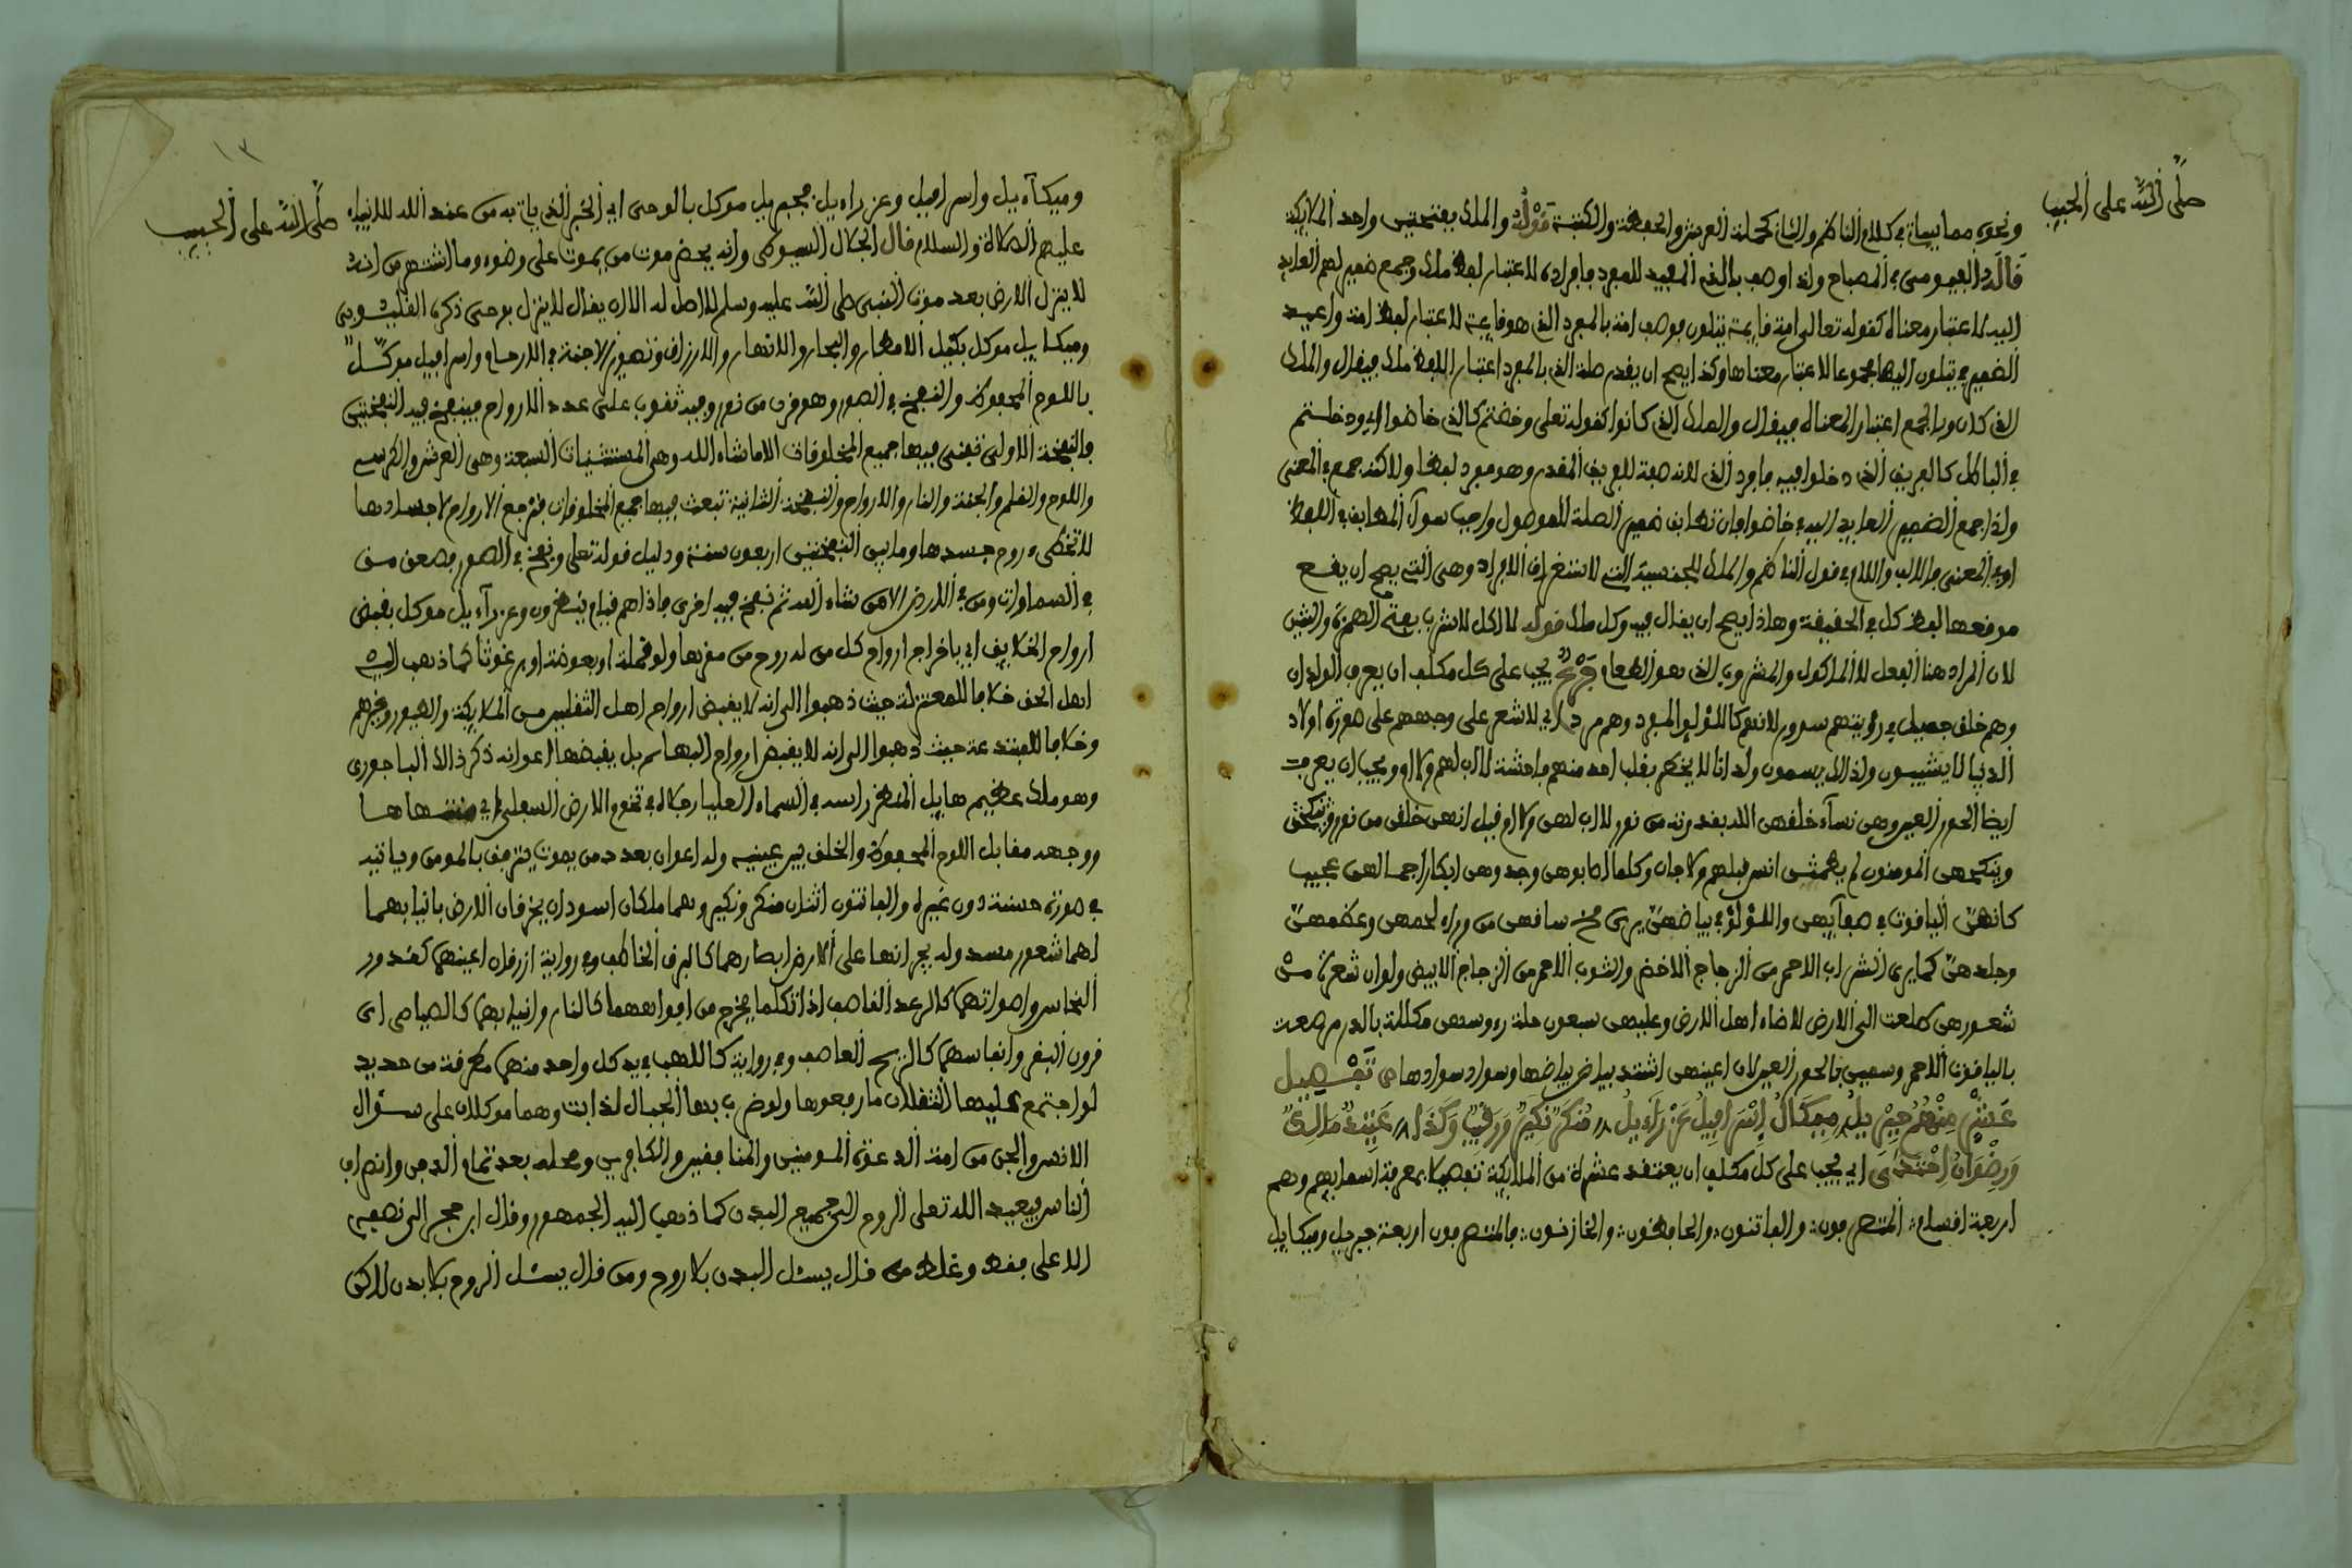 صلى الله على الحبيب
ونحوه مما يياتي في كلام الناظم والثاني كحملة العرش والحفظة والكتبة قوله والملك بفتحتين واحد الملايكة
قال الفيومي في المصباح ولذا وصف بالذي المفيد للمفرد فافراده لاعتبار لفظ ملك وجمع ضمير لهم العايد
اليه لاعتبار معناه كقوله تعالى امة قايمة يتلون فوصف امة بالمفرد الذي هو قايمة لاعتبار لفظ امة واعيد
الضمير في يتلون اليها مجموعا لاعتبار معناها وكذا يصح ان يقدر صلة الذي بالمفرد اعتبار اللفظ ملك فيقال والملك
الذي كان وبالجمع اعتبار المعناه فيقال والملك الذي كانوا كقوله تعلى وخضتم كالذي خاضوا اي ودخلتم
في الباطل كالفريق الذي دخلوا فيه فافرد الذي لانه صفة للفريق المقدر وهو مفرد لفظا ولاكنه جمع في المعنى
ولذا جمع الضمير العايد اليه في خاضوا فان تطابق ضمير الصلة للموصول واجب سوآ المطابق في اللفظ
او في المعنى فالالف واللام في قول الناظم والملك للجنسية التي لاستغراق الافراد وهي التي يصح ان يقع
موقعها لفظ كل في الحقيقة وهاذا يصح ان يقال فيه وكل ملك قوله لا اكل لا شرب بفتح الهمزة والشين
لان المراد هنا الفعل لا الماكول والمشروب الذي هو الطعام فرع يجب على كل مكلف ان يعرف الولدان
وهم خلق جميل في رؤيتهم سرور لانهم كاللؤلؤ المفرد وهم مرد اي لا شعر على وجههم على صورة اولاد
الدنيا لا يشيبون ولذالك يسمون ولدانا لا يخطر بقلب احد منهم فاحشة لا اب لهم ولا ام ويجب ان يعرف
ايضا الحور العين وهن نسآء خلقهن الله بقدرته من نور لا اب لهن ولا ام فيل انهن خلقن من نور
وينكحهن المومنون لم يطمثهن انس قبلهم ولا جان وكلما اصابوهن وجدوهن ابكارا جمالهن عجيب
كانهن الياقوت في صفآيهن واللؤلؤ في بياضهن يرى مخ ساقهن من وراء لحمهن وعظمهن
وجلدهن كما يرى الشراب الاحمر من الزجاج الاخضر والثوب الاحمر من الزجاج الابيض ولو ان شعرة من
شعورهن طلعت الى الارض لاضاء اهل الارض وعليهن سبعون حلة رءوسهن مكللة بالدر مرصعة
بالياقوت الاحمر وسمين بالحور العين لان اعينهن اشتد بياض بياضها وسواد سوادها ص تفصيل
عشر منهم جبريل ميكال اسرافيل عزرآءيل منكر نكير ورقيب وكذا عتيد مالك
ورضوان احتذى اي يجب على كل مكلف ان يعتقد عشرة من الملايكة تفصيلا بمعرفة اسمايهم وهم
اربعة اقسام المتصرفون والفاتنون والحافظون والخازنون فالمتصرفون اربعة جبريل وميكايل
١٣
صلى الله على الحبيب
وميكآءيل واسرافيل وعزراءيل فجبريل موكل بالوحي اي الخبر الذي ياتي به من عند الله للانبياء
عليهم الصلاة والسلام قال الجلال السيوطي وانه يحضر موت من يموت على وضوء وما اشتهر من انه
لا ينزل الارض بعد موت النبي صلى الله عليه وسلم لا اصل له الا ان يقال لا ينزل بوحي ذكره القليوبي
وميكايل موكل بكيل الامطار والبحار والانهار والارزاق وتصوير الاجنة في الارحام واسرافيل موكل
باللوح المحفوظ والنفخ في الصور وهو قرن من نور وفيه ثقوب على عدد الارواح فينفخ فيه النفختين
فالنفخة الاولى تفنى فيها جميع المخلوقات الا ما شاء الله وهي المستثنيات السبعة وهي العرش والكرسي
واللوح والقلم والجنة والنار والارواح والنفخة الثانية تبعث فيها جميع المخلوقات فترجع الارواح لاجسادها
لا تخطئ روح جسدها وما بين النفختين اربعون سنة ودليل قوله تعلى ونفخ في الصور فصعق من
في السماوات ومن في الارض الا من شاء الله ثم نفخ فيه اخرى فاذا هم قيام ينظرون وعزرآءيل موكل بقبض
ارواح الخلايق اي باخراج ارواح كل من له روح من مقرها ولو قملة او بعوضة او برغوثا كما ذهب اليه
اهل الحق خلافا للمعتزلة حيث ذهبوا الى انه لا يقبض ارواح اهل الثقلين من الملايكة والطيور وغيرهم
وخلافا للمبتدعة حيث ذهبوا الى انه لا يقبض ارواح البهايم بل يقبضها اعوانه ذكر ذالك الباجوري
وهو ملك عظيم هايل المنظر راسه في السماء العليا رجلاه في تخوم الارض السفلى اي منتهاها
ووجهه مقابل اللوح المحفوظ والخلق بين عينيه وله اعوان بعدد من يموت يترفق بالمومن وياتيه
في صورة حسنة دون غيره والفاتنون اثنان منكر ونكير وهما ملكان اسودان يخرقان الارض بانيابهما
لهما شعور مسدولة يجرانها على الارض ابصارهما كالبرق الخاطف وفي رواية ازرقان اعينهما كقدور
النحاس واصواتهما كالرعد القاصف اذا تكلما يخرج من افواههما كالنار وانيابهما كالصياصي اي
قرون البقر وانفاسهما كالريح العاصف وفي رواية كاللهب في يد كل واحد منهما مطرقة من حديد
لو اجتمع عليها الثقلان ما رفعوها ولو ضرب بها الجبال لذابت وهما موكلان على سؤال
الانس والجن من امة الدعوة المومنين والمنافقين والكافرين ومحله بعد تمام الدفن وانصراف
الناس فيعيد الله تعلى الروح الى جميع البدن كما ذهب اليه الجمهور وقال ابن حجر الى نصفه
الاعلى فقط وغلط من قال يسئل البدن بلا روح ومن قال يسئل الروح بلا بدن لاكن